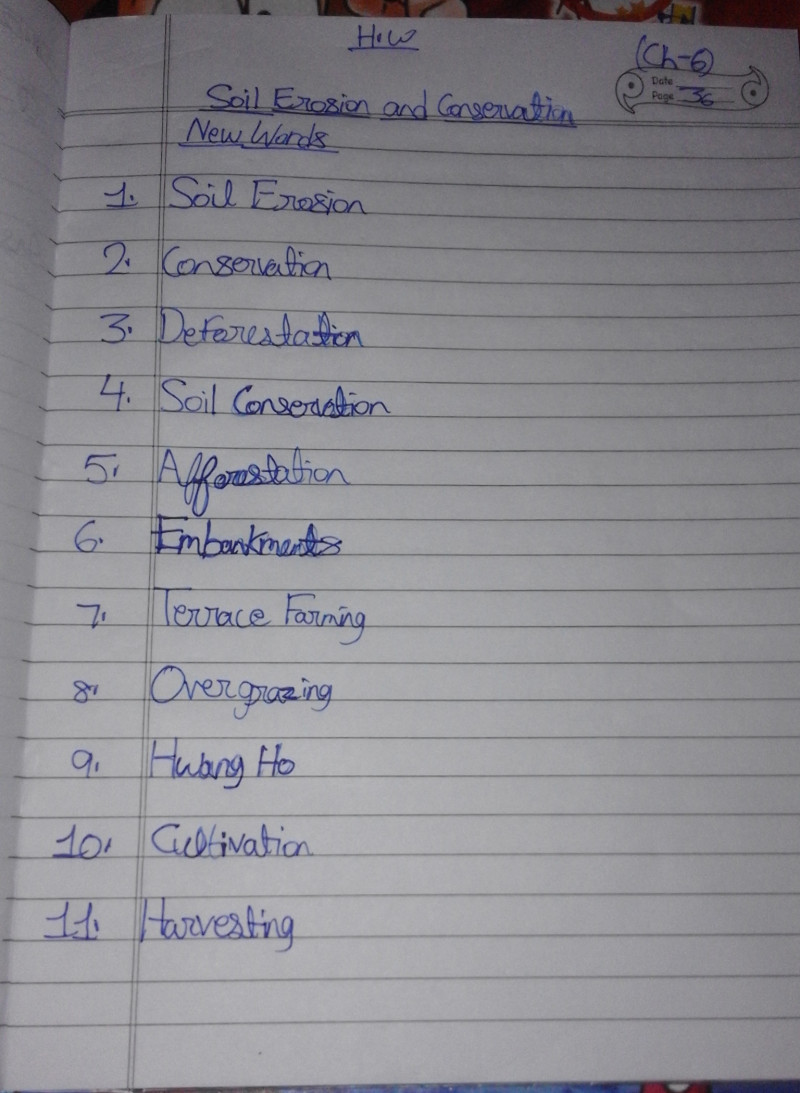 H.W
(Ch-6)
Date
Page 36
Soil Erosion and Conservation
New Words
1. Soil Erosion
2. Conservation
3. Deforestation
4. Soil Conservation
5. Afforestation
6. Embankments
7. Terrace Farming
8. Overgrazing
9. Hwang Ho
10. Cultivation
11. Harvesting